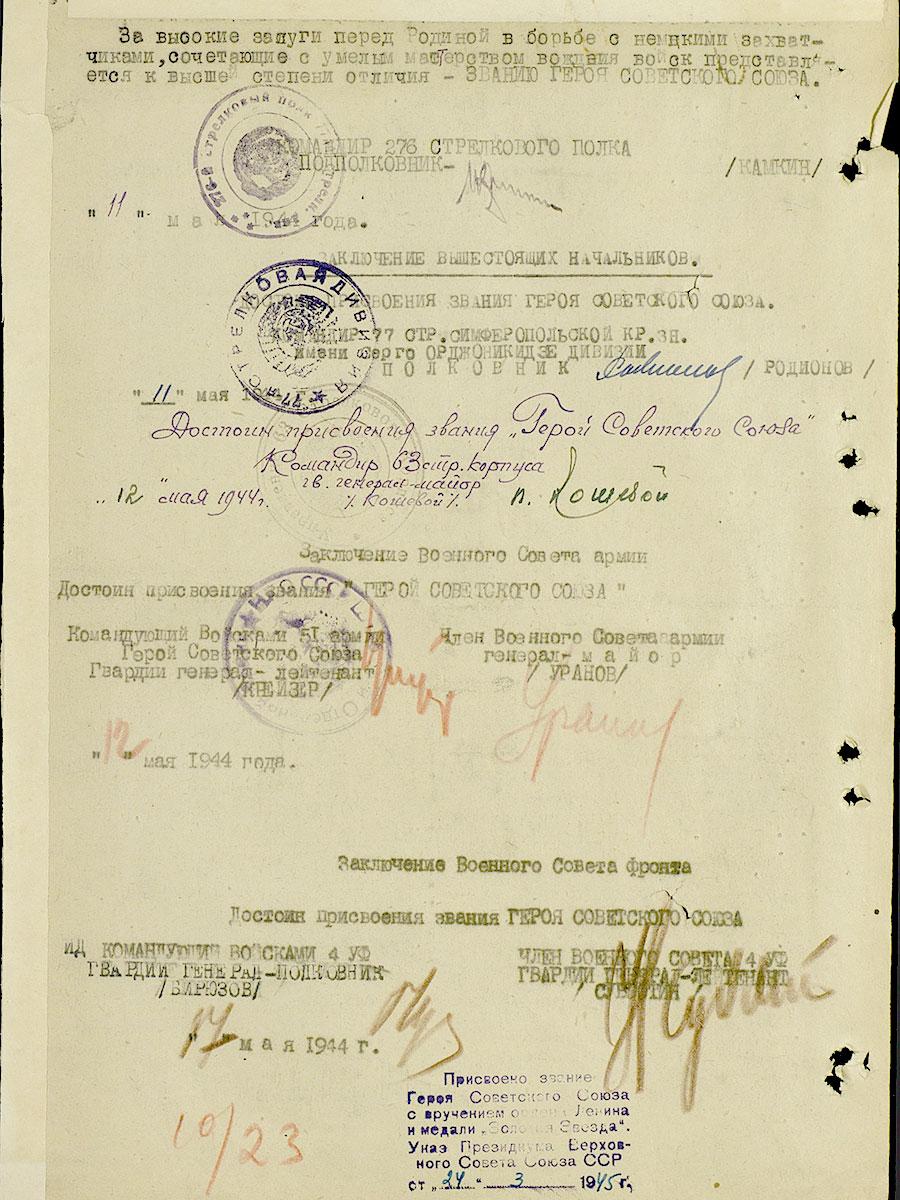 За высокие залуги перед Родиной в борьбе с немцкими захват-
чиками,сочетающие с умелым мастерством вождения войск представл-
ется к высшей степени отличия - ЗВАНИЮ ГЕРОЯ СОВЕТСКОГО СОЮЗА.
276-й стрелковый полк 77
КОМАНДИР 276 СТРЕЛКОВОГО ПОЛКА
ПОДПОЛКОВНИК-
/КАМКИН/
"11" мая 1944 года.
ЗАКЛЮЧЕНИЕ ВЫШЕСТОЯЩИХ НАЧАЛЬНИКОВ.
СТРЕЛКОВАЯ ДИВИЗИЯ
77
ПРИСВОЕНИЯ ЗВАНИЯ ГЕРОЯ СОВЕТСКОГО СОЮЗА.
КОМАНДИР 77 СТР.СИМФЕРОПОЛЬСКОЙ КР.ЗН.
имени Серго ОРДЖОНИКИДЗЕ ДИВИЗИИ
ПОЛКОВНИК
/РОДИОНОВ/
"11" мая
Достоин присвоения звания „Герой Советского Союза"
Командир 63 стр. корпуса
гв. генерал-майор
„12" мая 1944 г.
/. Кошевой /.
П. Кошевой
Заключение Военного Совета армии
Достоин присвоения звания " ГЕРОЙ СОВЕТСКОГО СОЮЗА "
Командующий Войсками 51 армии
Герой Советского Союза
Гвардии генерал- лейтенант
/КРЕЙЗЕР/
Член Военного Совета армии
генерал-майор
/УРАНОВ/
Уранов
"12" мая 1944 года.
Заключение Военного Совета фронта
Достоин присвоения звания ГЕРОЯ СОВЕТСКОГО СОЮЗА
ИД КОМАНДУЮЩИЙ ВОЙСКАМИ 4 УФ
ГВАРДИИ ГЕНЕРАЛ-ПОЛКОВНИК
/БИРЮЗОВ/
ЧЛЕН ВОЕННОГО СОВЕТА 4 УФ
ГВАРДИИ ГЕНЕРАЛ-ЛЕЙТЕНАНТ
"17" мая 1944 г.
10/23
Присвоено звание
Героя Советского Союза
с вручением ордена Ленина
и медали „Золотая Звезда".
Указ Президиума Верхов-
ного Совета Союза ССР
от „24" 3 1945 г,